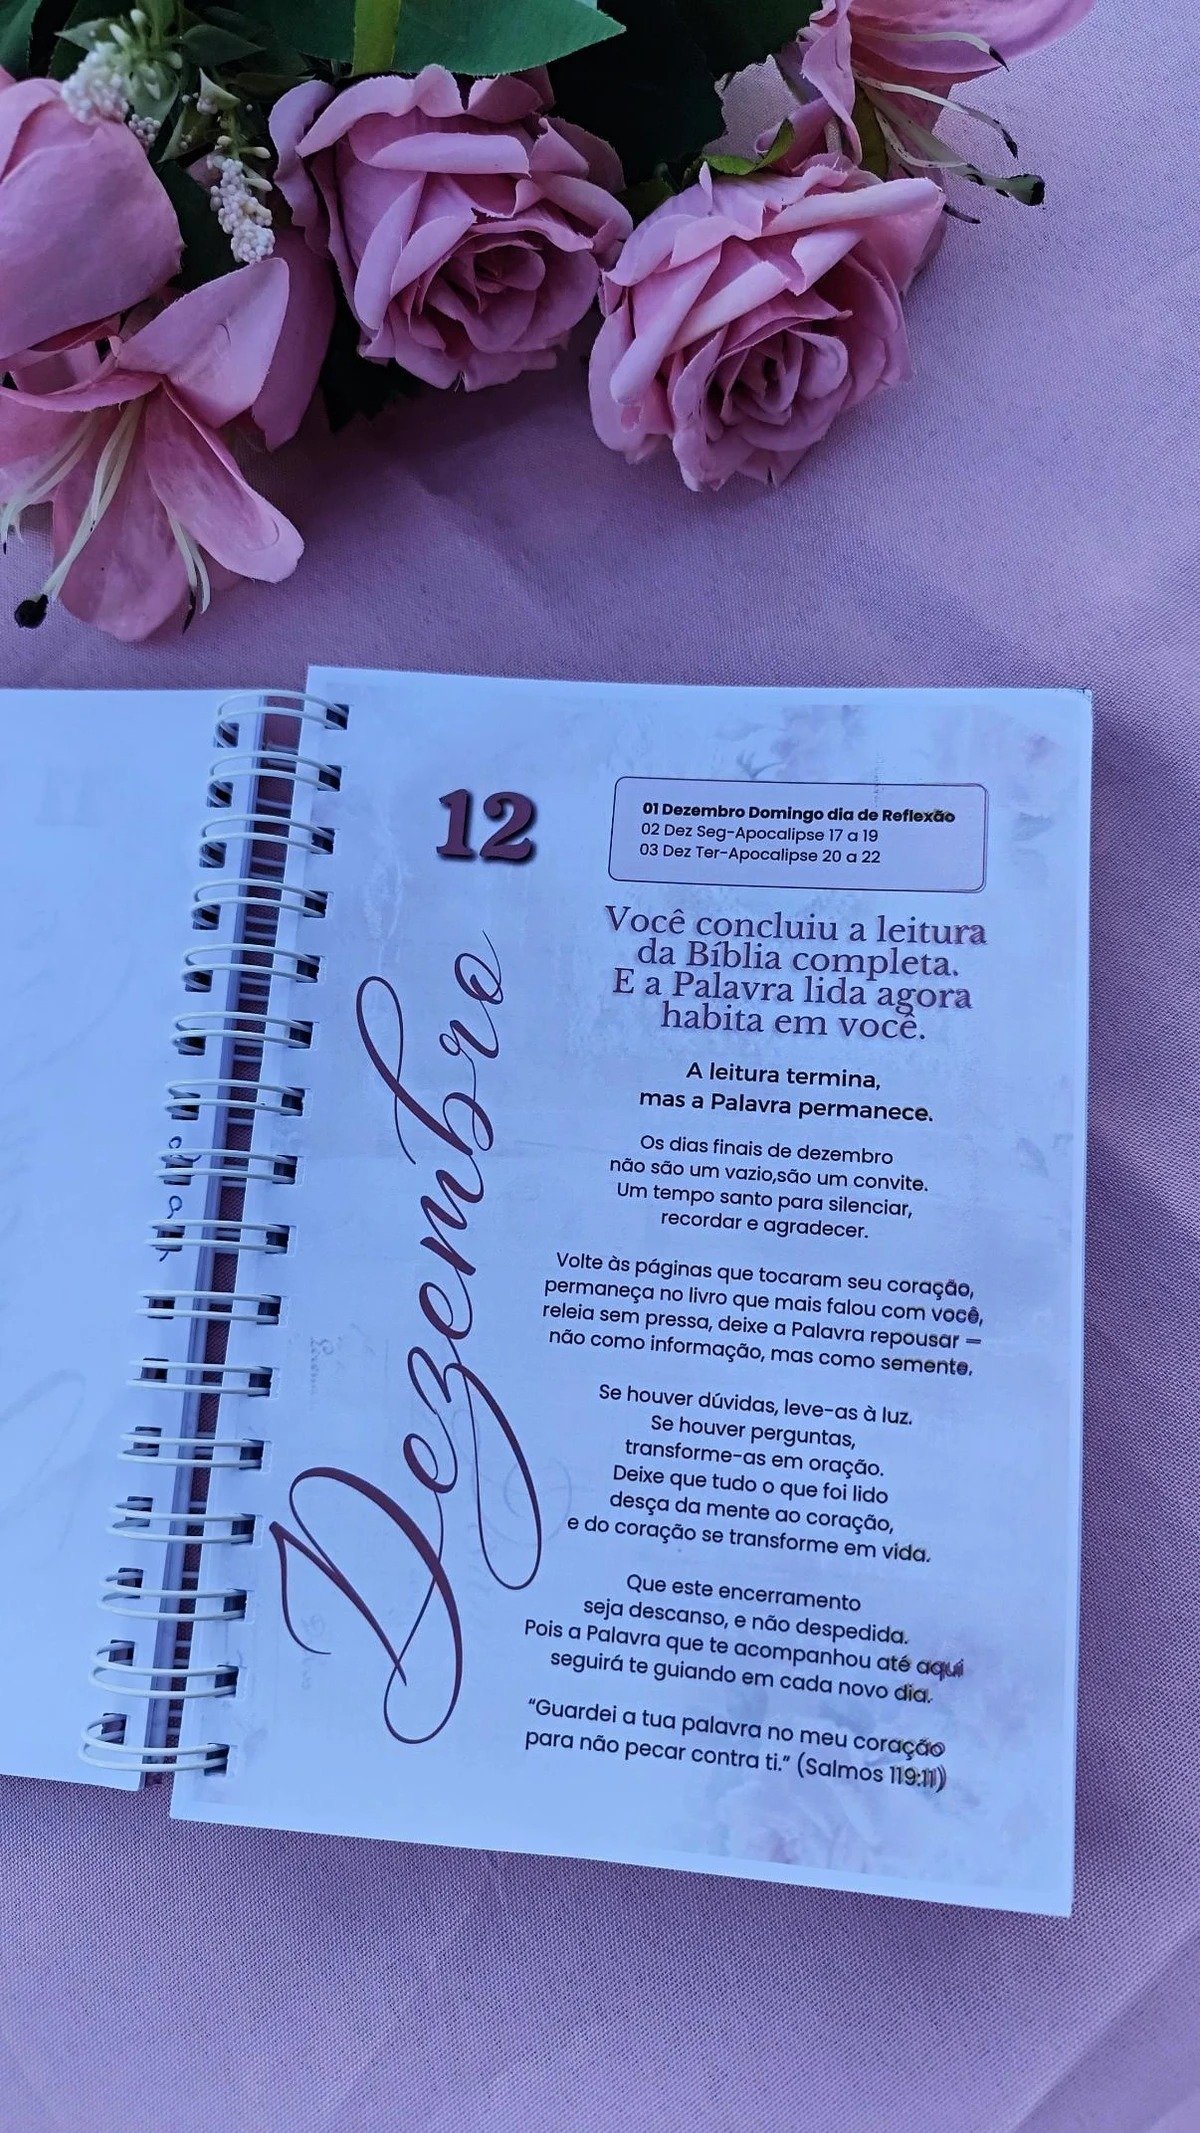 12
Dezembro
01 Dezembro Domingo dia de Reflexão
02 Dez Seg-Apocalipse 17 a 19
03 Dez Ter-Apocalipse 20 a 22
Você concluiu a leitura
da Bíblia completa.
E a Palavra lida agora
habita em você.
A leitura termina,
mas a Palavra permanece.
Os dias finais de dezembro
não são um vazio,são um convite.
Um tempo santo para silenciar,
recordar e agradecer.
Volte às páginas que tocaram seu coração,
permaneça no livro que mais falou com você,
releia sem pressa, deixe a Palavra repousar —
não como informação, mas como semente.
Se houver dúvidas, leve-as à luz.
Se houver perguntas,
transforme-as em oração.
Deixe que tudo o que foi lido
desça da mente ao coração,
e do coração se transforme em vida.
Que este encerramento
seja descanso, e não despedida.
Pois a Palavra que te acompanhou até aqui
seguirá te guiando em cada novo dia.
“Guardei a tua palavra no meu coração
para não pecar contra ti.” (Salmos 119:11)